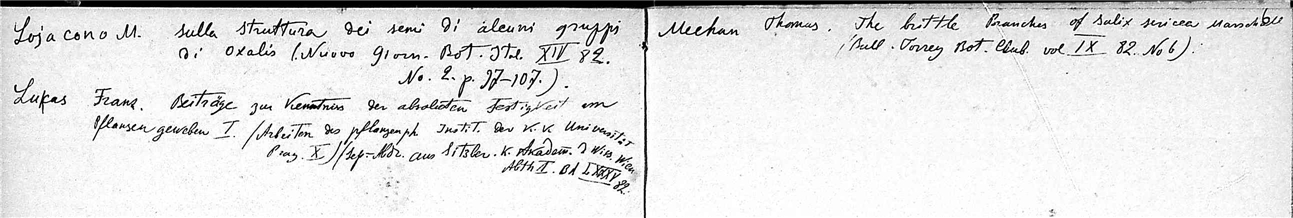 Lojacono M. Sulla struttura dei semi di alcuni gruppi
di Oxalis (Nuovo Giorn. Bot. Ital. XIV 82.
No. 2. p. 97-107.).
Lukas Franz. Beiträge zur Kenntniss der absoluten Festigkeit von
Pflanzengeweben I. (Arbeiten des pflanzenph. Instit. der K. K. Universität
Prag. X) (Sep.-Abdr. aus Sitzber. K. Akadem. d Wiss. Wien
Abth II. Bd LXXXV 82.
Meehan Thomas. The brittle Branches of Salix sericea Marschall
(Bull. Torrey Bot. Club. vol. IX 82. No 6).